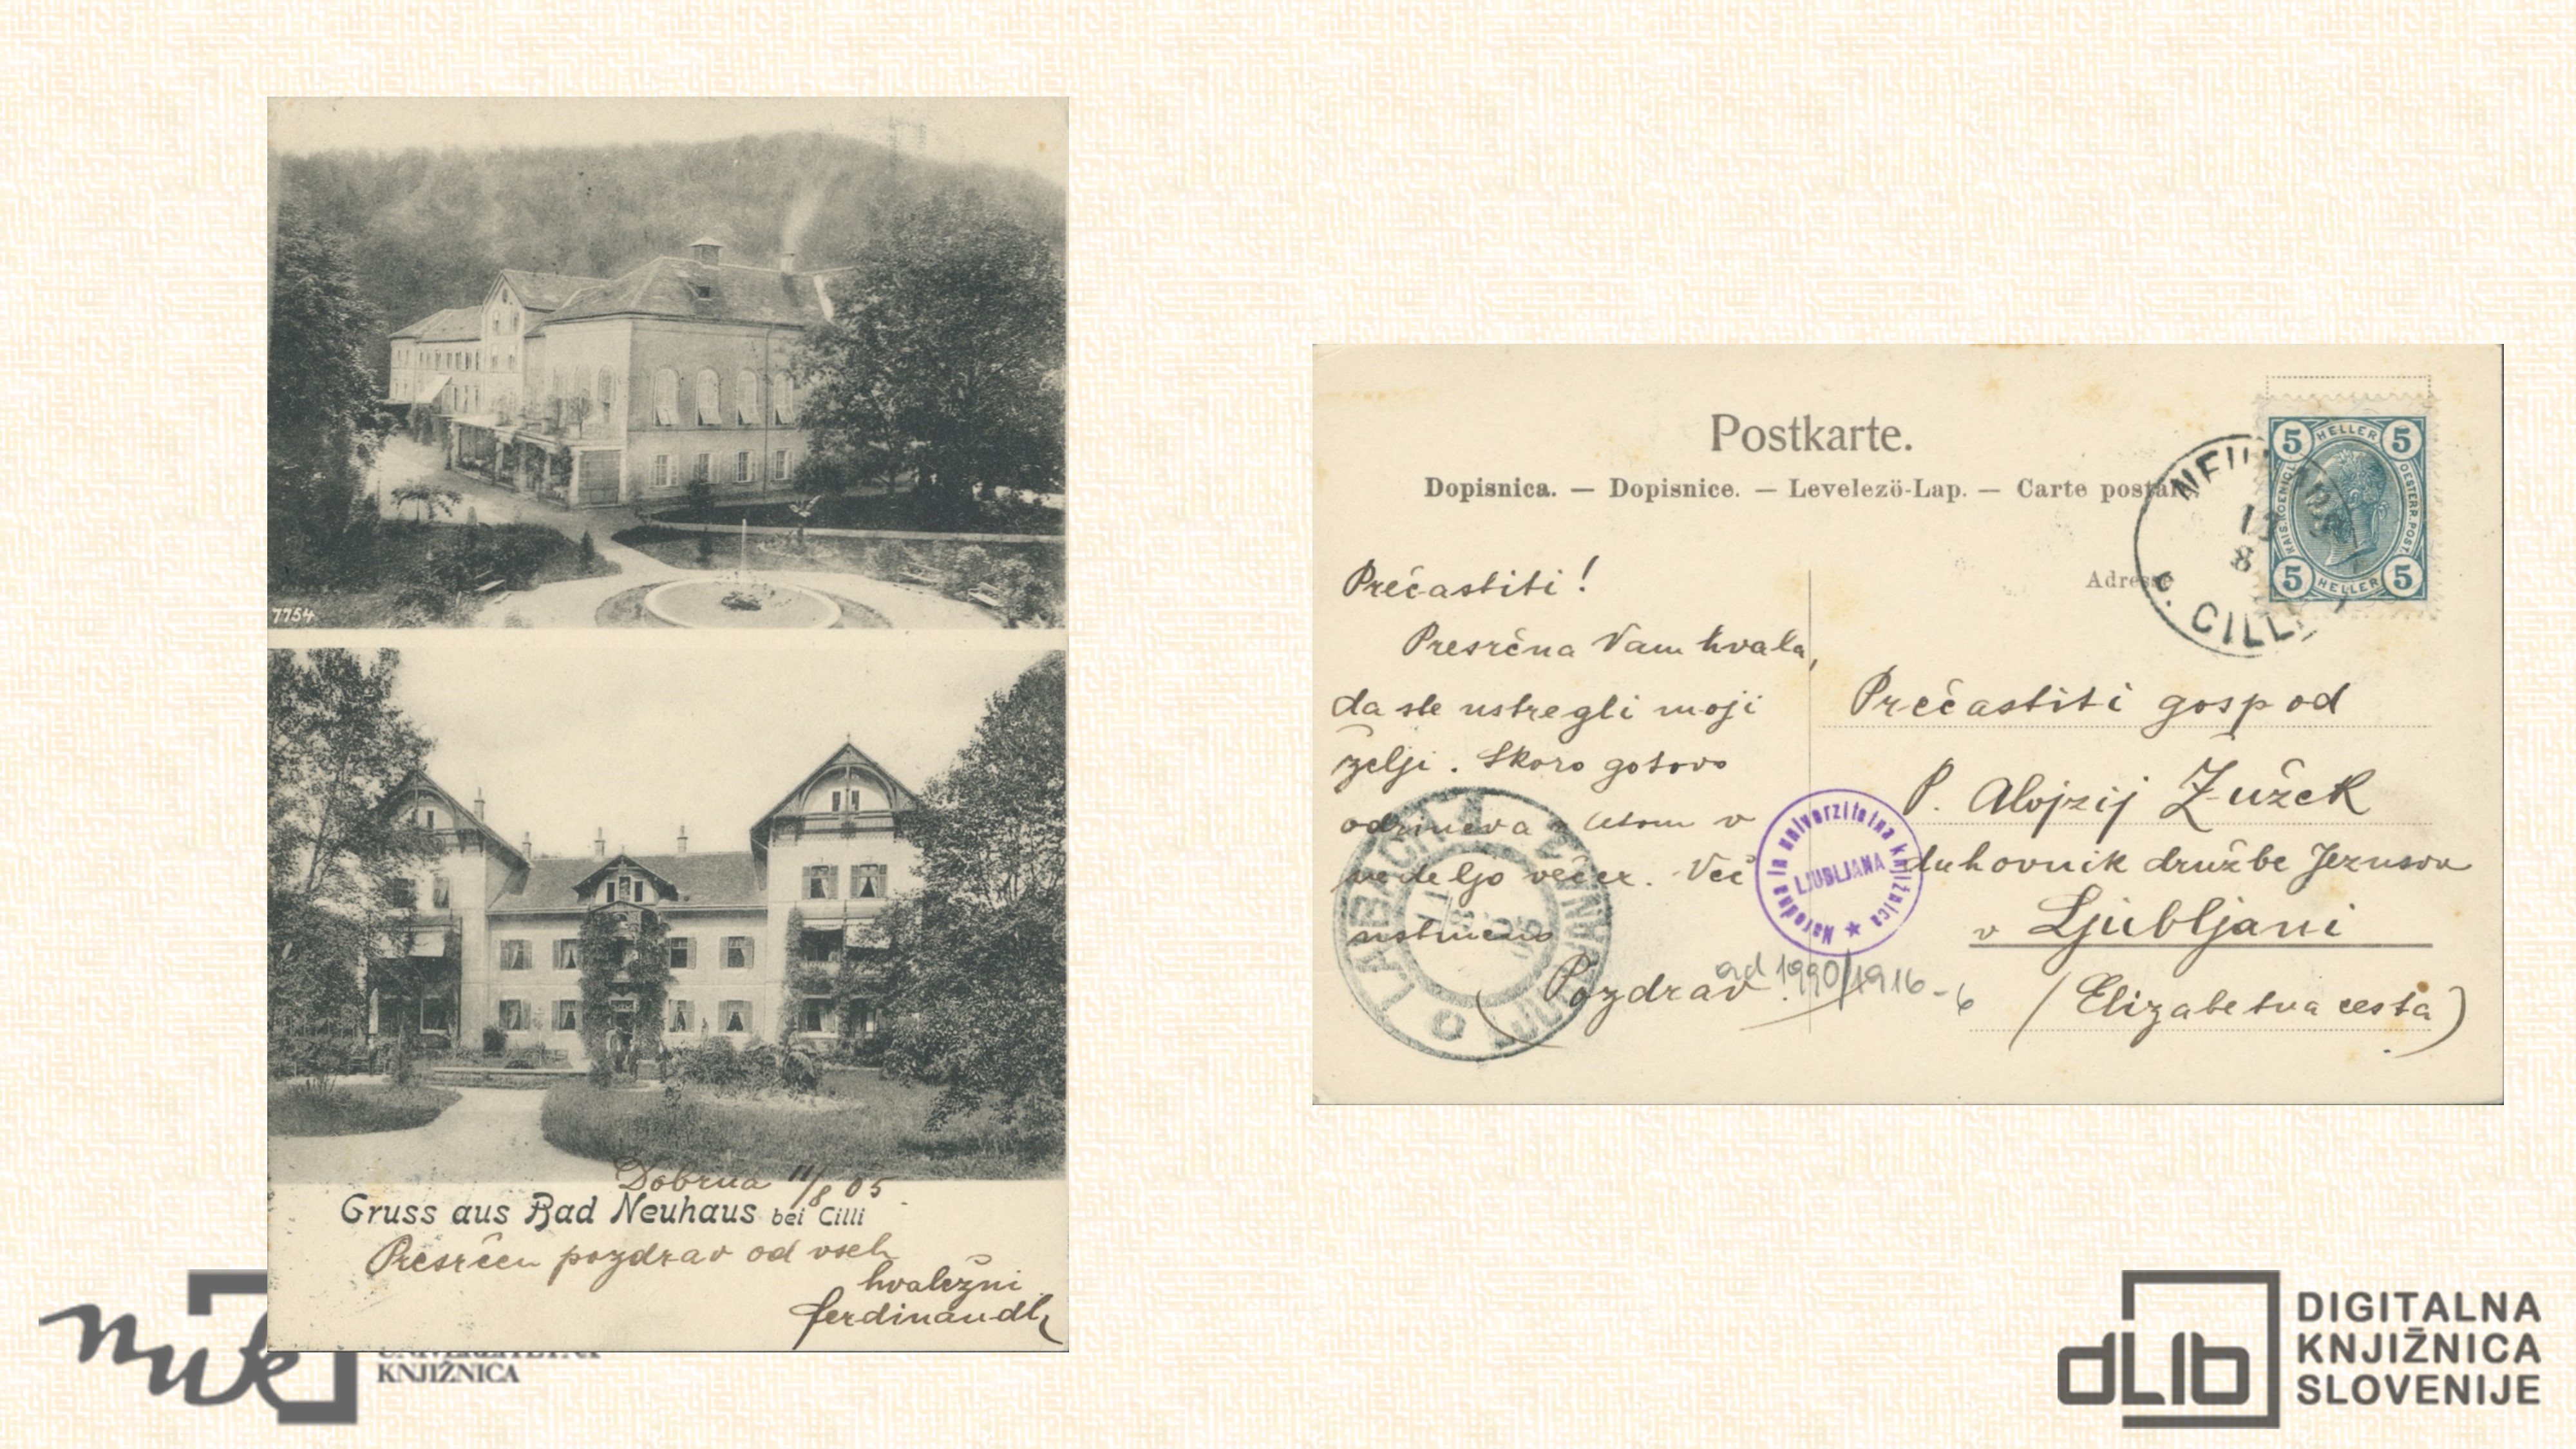 7754
Dobrna 11/8 05.
Gruss aus Bad Neuhaus bei Cilli
Presrčen pozdrav od vseh
hvaležni
Ferdinand
Postkarte.
Dopisnica. — Dopisnice. — Levelezö-Lap. — Carte postale
Adresse
5 HELLER 5
KAIS. KOENIGL. OESTERR. POST
5 HELLER 5
CILLI
Prečastiti!
Presrčna Vam hvala,
da ste ustregli moji
želji. Skoro gotovo
v
nedeljo večer. Več
ustmeno
Pozdrav.
LAIBACH
LJUBLJANA
Narodna in univerzitetna knjižnica
LJUBLJANA
od 1990/1916-6
Prečastiti gospod
P. Alojzij Žužek
duhovnik družbe Jezusove
v Ljubljani
(Elizabetna cesta)
nuk
UNIVERZITETNA
KNJIŽNICA
dLib
DIGITALNA
KNJIŽNICA
SLOVENIJE